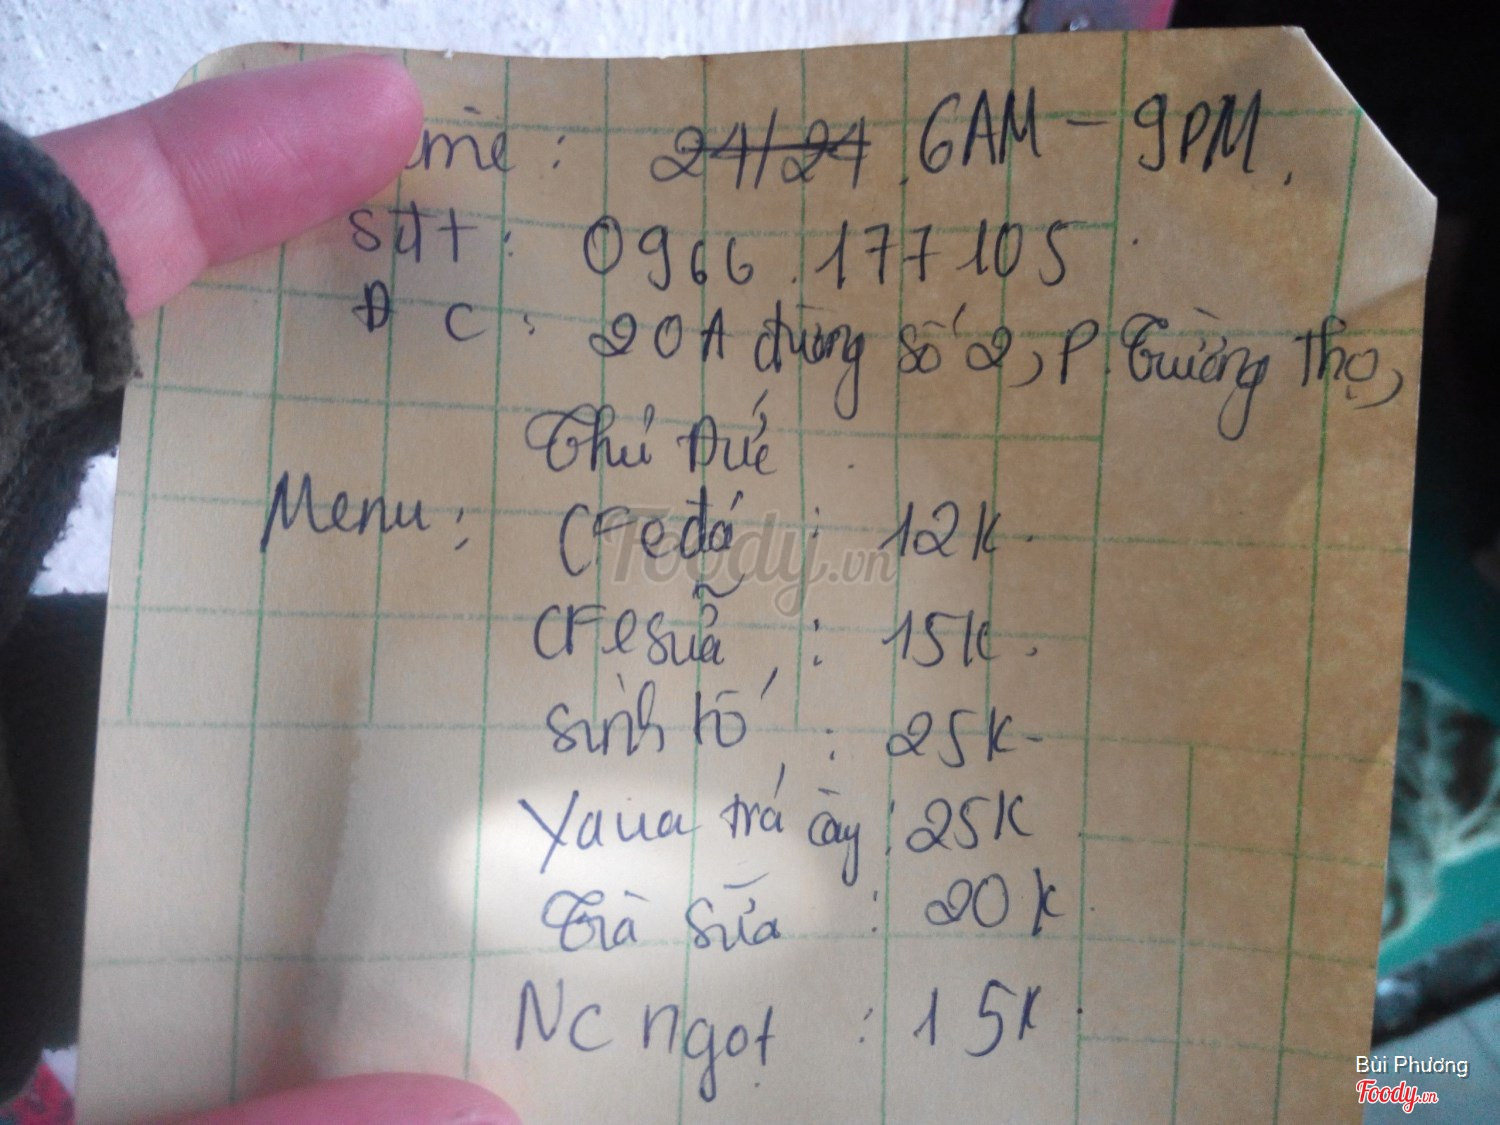 ime : 24/24 6AM - 9PM.
Sđt : 0966.177105
Đ C : 20A đường số 2, P. Trường Thọ,
Thủ Đức
Menu : CFe đá : 12K.
CFe sữa : 15K.
Sinh tố : 25K-
Yaua trá cây : 25K
Trà sữa : 20K.
Nc ngọt : 15K.
Foody.vn
Bùi Phương
Foody.vn